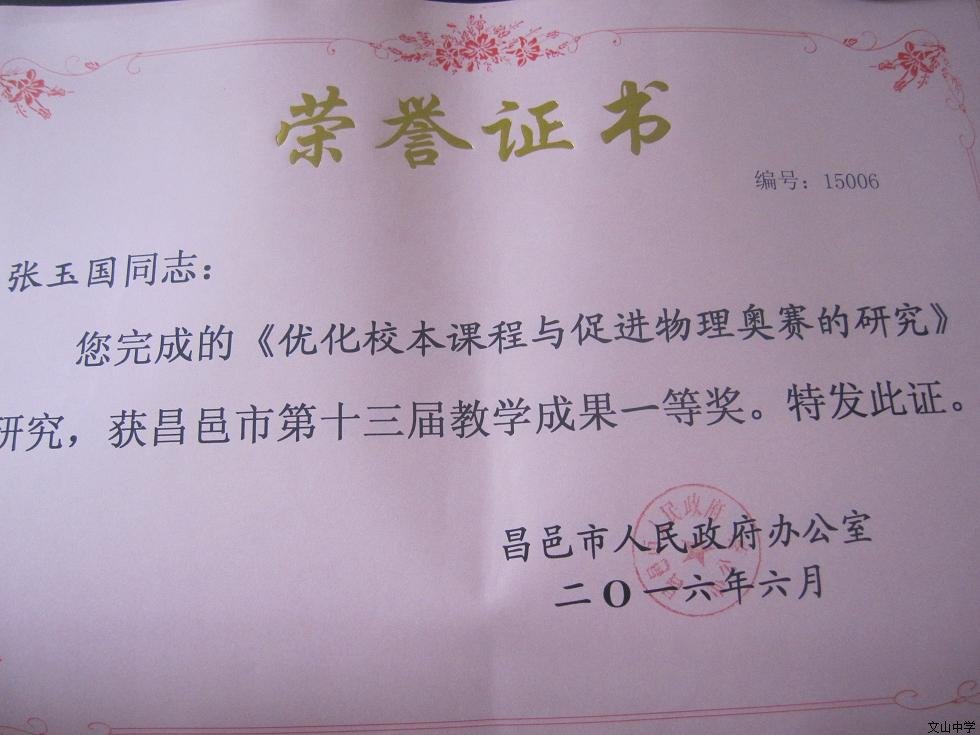 荣誉证书
编号：15006
张玉国同志：
您完成的《优化校本课程与促进物理奥赛的研究》
研究，获昌邑市第十三届教学成果一等奖。特发此证。
昌邑市人民政府办公室
二O一六年六月
文山中学